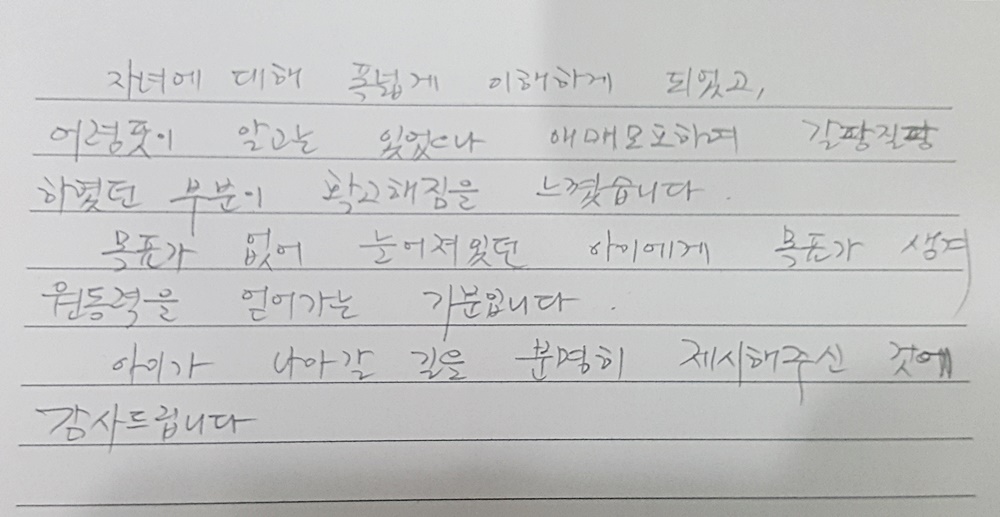 자녀에 대해 폭넓게 이해하게 되었고,
어렴풋이 알고는 있었으나 애매모호하며 갈팡질팡
하였던 부분이 확고해짐을 느꼈습니다.
목표가 없어 늘어져있던 아이에게 목표가 생겨
원동력을 얻어가는 기분입니다.
아이가 나아갈 길을 분명히 제시해주신 것에
감사드립니다